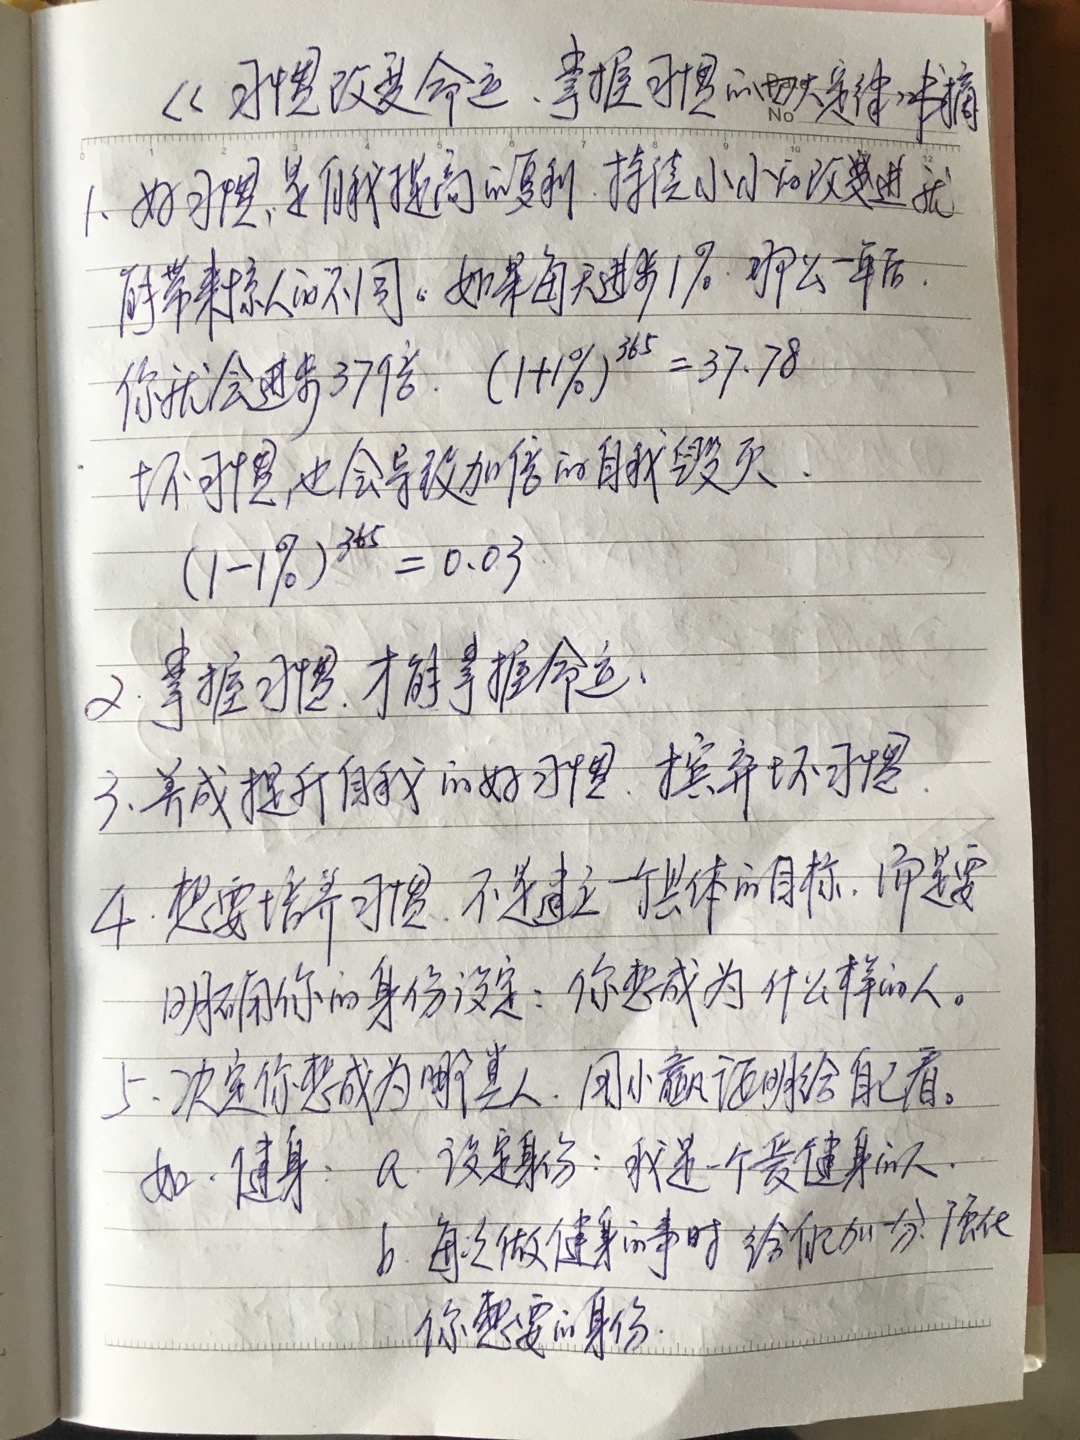 《习惯改变命运、掌握习惯的四大定律》书摘
No
0 1 2 3 4 5 6 7 8 9 10 11 12
1、好习惯,是自我提高的复利.持续小小的改变进就
能带来惊人的不同。如果每天进步1%.那么一年后.
你就会进步37倍. (1+1%)³⁶⁵=37.78
坏习惯,也会导致加倍的自我毁灭.
(1-1%)³⁶⁵=0.03
2.掌握习惯.才能掌握命运、
3、养成提升自我的好习惯.摈弃坏习惯.
4.想要培养习惯.不是建立一个具体的目标.而是要
明确你的身份设定:你想成为什么样的人。
5、决定你想成为哪类人.用小赢证明给自己看。
如.健身: a.设定身份:我是一个爱健身的人.
b.每次做健身的事时给自己加分.强化
你想要的身份.